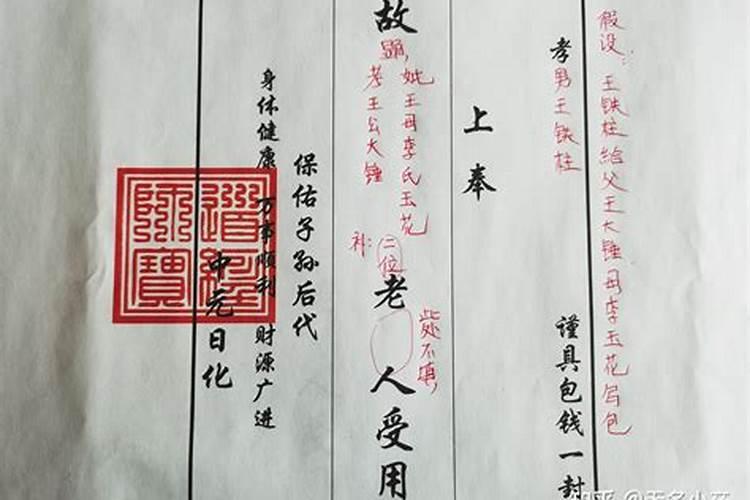 假设：王铁柱给父王大锤母李玉花写包
孝男王铁柱
谨具包钱一封
上奉
故
显，
妣王母李氏玉花
考王公大锤
补：二位
老人受用
此处不填，
保佑子孙后代
身体健康 万事顺利 财源广进
中元日化
道經師寶